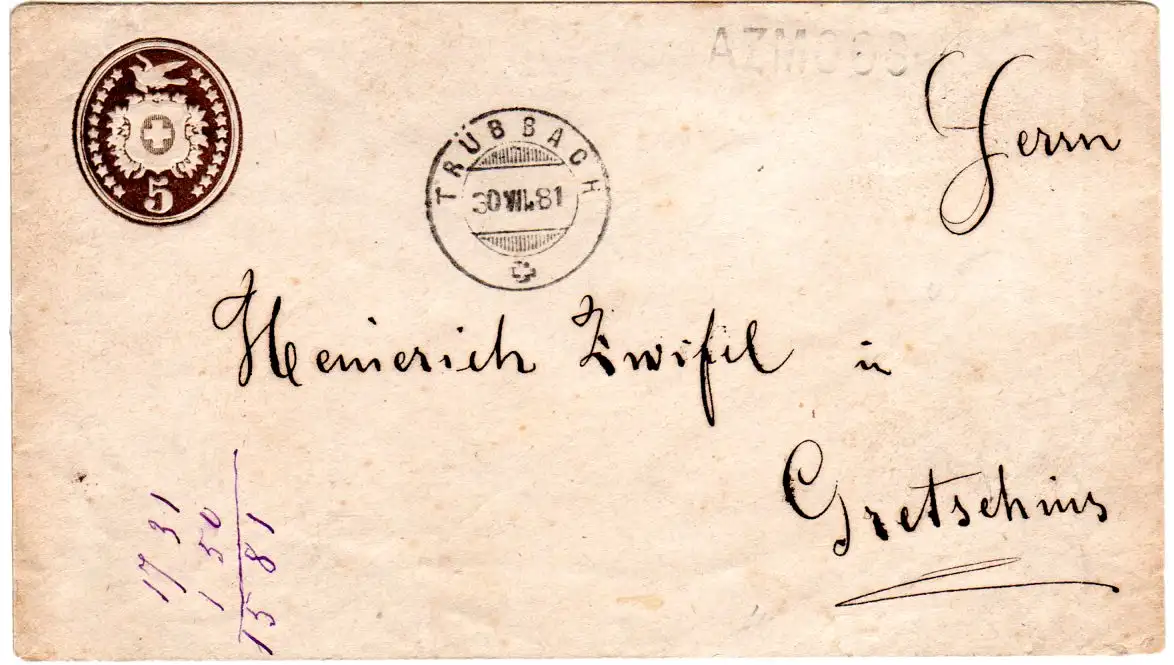 AZMOOS
5
TRÜBBACH
30 VII. 81
Herrn
Heinerich Zwifel in
Gretschins
17 31
1 50
15 81